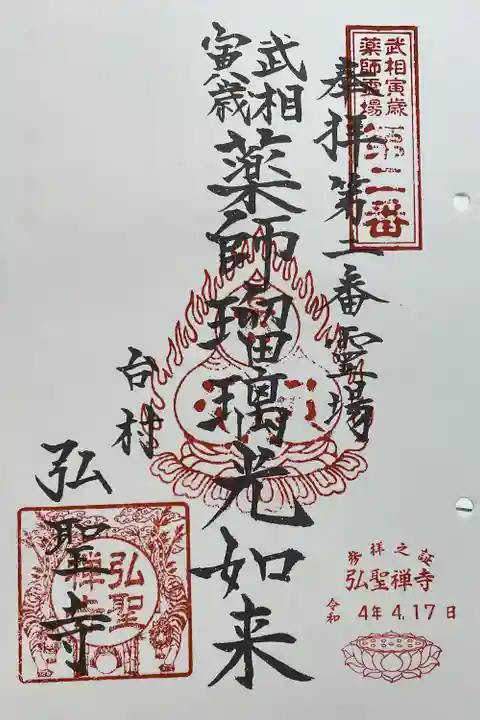 武相寅歳
薬師霊場
第二番
奉拝第二番霊場
武相
寅歳
薬師瑠璃光如来
台村
弘聖寺
弘聖
禅寺
拝之証
弘聖禅寺
令和 4年 4.17日